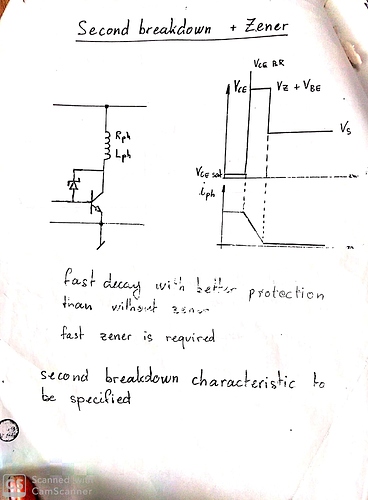 Second breakdown + Zener
VCE BR
VCE
VZ + VBE
VS
Rph
Lph
VCE sat
iph
fast decay with better protection
than without zener
fast zener is required
second breakdown characteristic to
be specified
CS
Scanned with
CamScanner